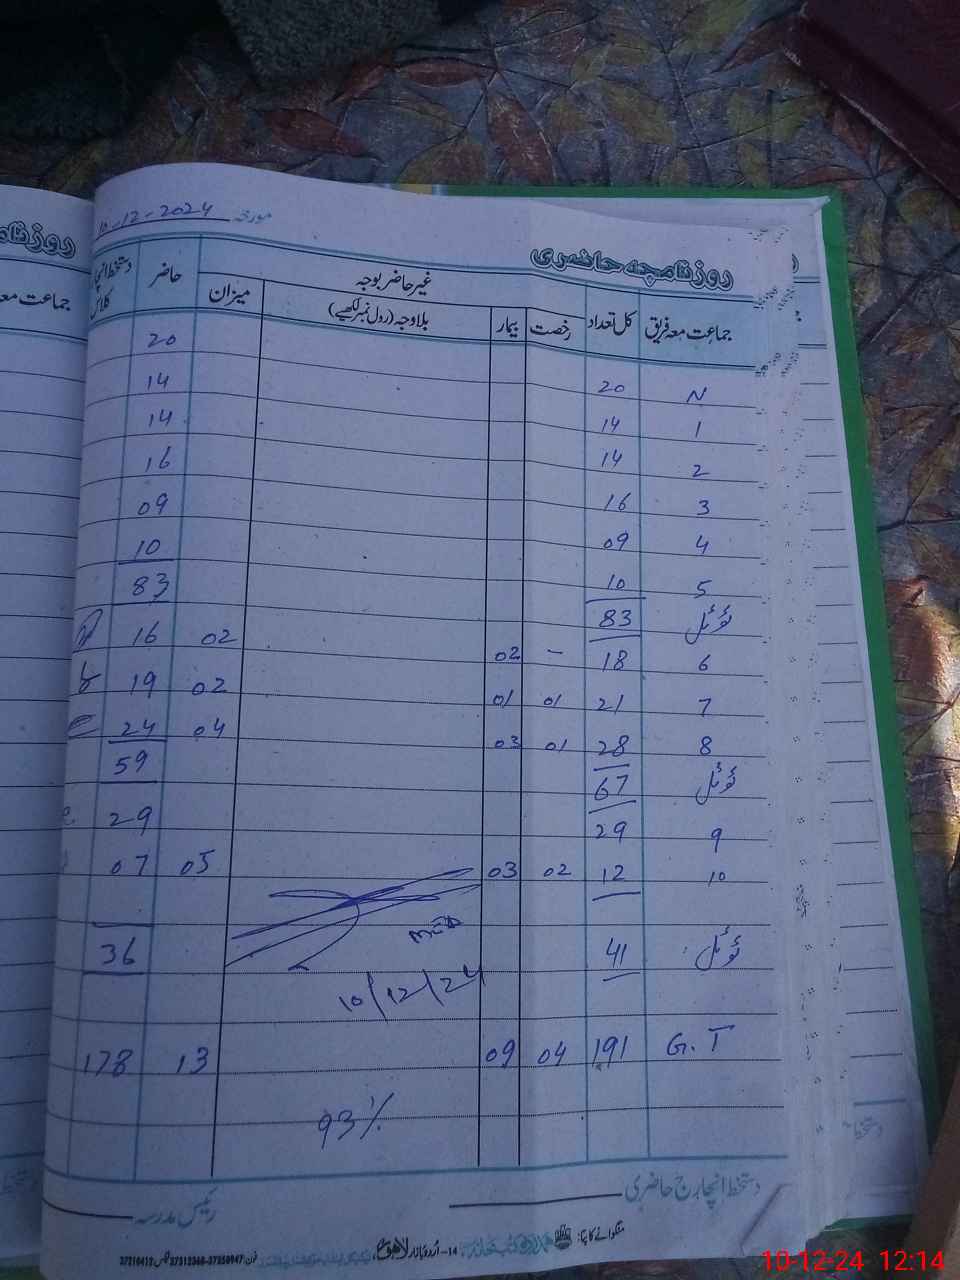 مورخہ 10-12-2024
روزنامچہ حاضری
جماعت معہ فریق کل تعداد غیر حاضر بوجہ حاضر
رخصت بیمار بلاوجہ (رول نمبر لکھیے) میزان
N 20 20
1 14 14
2 14 14
3 16 16
4 09 09
5 10 10
ٹوٹل 83 83
6 18 – 02 02 16
7 21 01 01 02 19
8 28 01 03 04 24
ٹوٹل 67 59
9 29 29
10 12 02 03 05 07
ٹوٹل 41 36
10/12/24
G.T 191 04 09 13 178
93%
دستخط انچارج حاضری
رئیس مدرسہ
منگوانے کا پتہ:
14-اُردو بازار لاہور
10-12-24 12:14